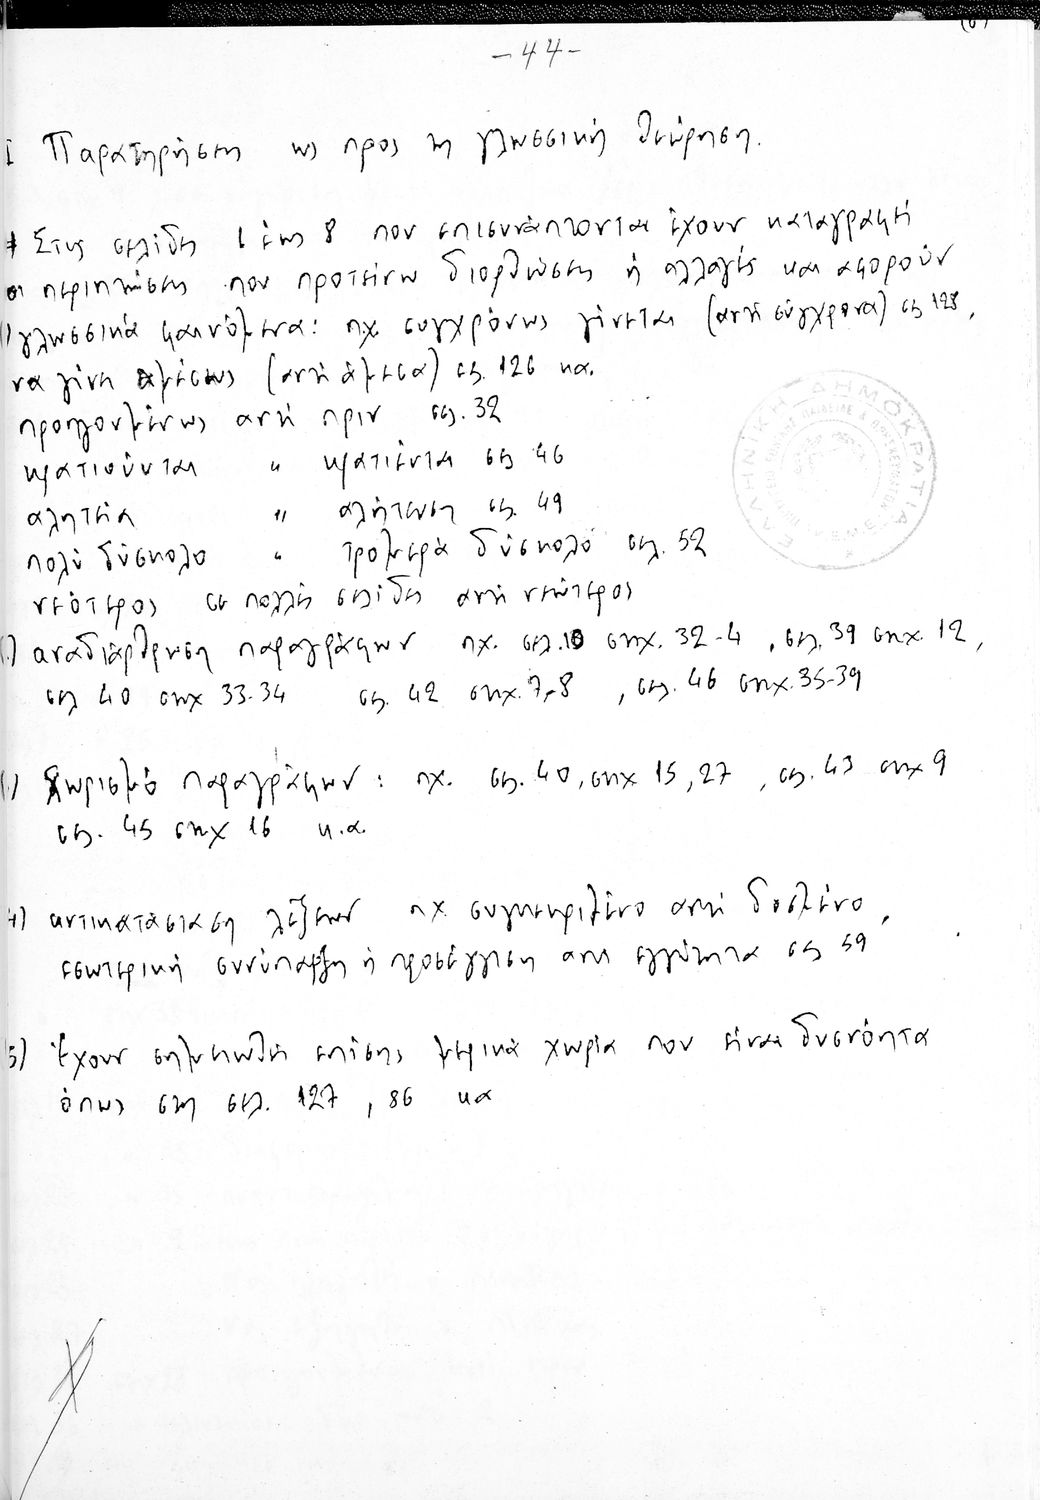 (6)
-44-
I Παρατηρήσεις ως προς τη γλωσσική θεώρηση.
Στις σελίδες 1 έως 8 που επισυνάπτονται έχουν καταγραφεί
οι περιπτώσεις που προτείνω διορθώσεις ή αλλαγές και αφορούν
1) γλωσσικά φαινόμενα: πχ συγχρόνως γίνεται (αντί σύγχρονα) σελ 128,
να γίνει αμέσως (αντί άμεσα) σελ. 126 κα.
προηγουμένως αντί πριν σελ. 32
κρατιούνται " κρατιένται σελ 46
αλητεία " αλήτευση σελ. 49
πολύ δύσκολο " τρομερά δύσκολο σελ. 52
νεότερος σε πολλές σελίδες αντί νεώτερος
) αναδιάρθρωση παραγράφων πχ. σελ. 10 στιχ. 32-4, σελ. 39 στιχ. 12,
σελ 40 στιχ 33-34 σελ. 42 στιχ. 7,8 , σελ. 46 στιχ. 35-39
) Χωρισμό παραγράφων: πχ. σελ. 40, στιχ 15, 27 , σελ. 43 στιχ 9
σελ. 45 στιχ 16 κ.α.
4) αντικατάσταση λέξεων πχ συγκεκριμένο αντί δοσμένο,
εσωτερική συνύπαρξη ή προσέγγιση αντί εγγύτητα σελ 59
5) Έχουν σημειωθεί επίσης μερικά χωρία που είναι δυσνόητα
όπως στη σελ. 127 , 86 κα
ΕΛΛΗΝΙΚΗ ΔΗΜΟΚΡΑΤΙΑ